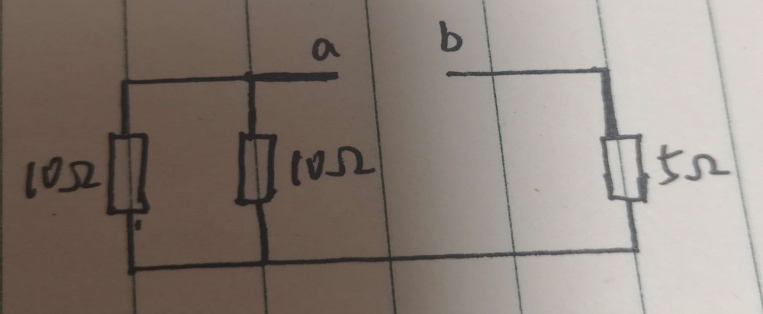 a b
10Ω 10Ω 5Ω